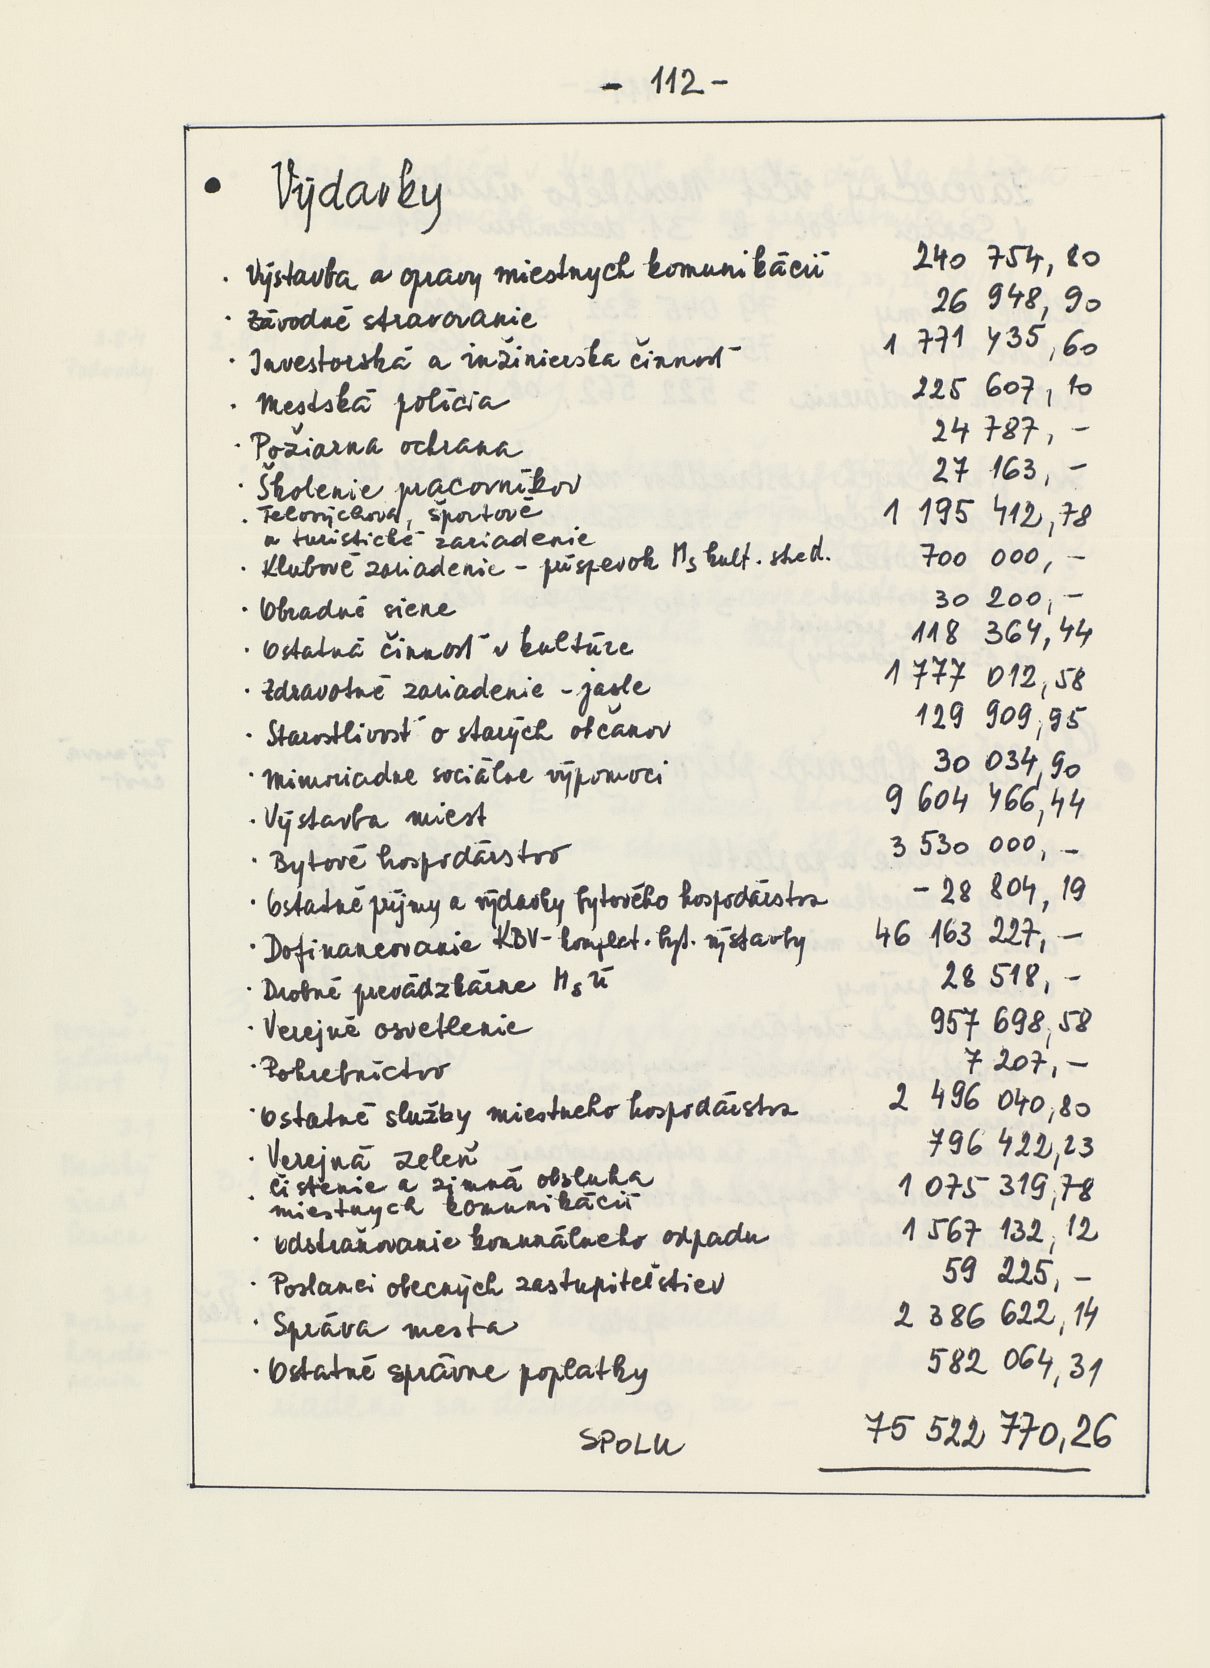 - 112 -
• Výdavky
· Výstavba a opravy miestnych komunikácií 240 754,80
· Závodné stravovanie 26 948,90
· Investorská a inžinierska činnosť 1 771 435,60
· Mestská polícia 225 607,10
· Požiarna ochrana 24 787,-
· Školenie pracovníkov 27 163,-
· Telovýchova, športové
a turistické zariadenie 1 195 412,78
· Klubové zariadenie - príspevok Ms kult. stred. 700 000,-
· Obradné siene 30 200,-
· Ostatná činnosť v kultúre 118 364,44
· Zdravotné zariadenie - jasle 1 777 012,58
· Starostlivosť o starých občanov 129 909,95
· Mimoriadne sociálne výpomoci 30 034,90
· Výstavba miest 9 604 466,44
· Bytové hospodárstvo 3 530 000,-
· Ostatné príjmy a výdavky bytového hospodárstva - 28 804,19
· Dofinancovanie KBV - komplet. byt. výstavby 46 163 227,-
· Drobné prevádzkárne MsÚ 28 518,-
· Verejné osvetlenie 957 698,58
· Pohrebníctvo 7 207,-
· Ostatné služby miestneho hospodárstva 2 496 040,80
· Verejná zeleň 796 422,23
· čistenie a zimná obsluha
miestnych komunikácií 1 075 319,78
· Odstraňovanie komunálneho odpadu 1 567 132,12
· Poslanci obecných zastupiteľstiev 59 225,-
· Správa mesta 2 386 622,14
· Ostatné správne poplatky 582 064,31
SPOLU 75 522 770,26